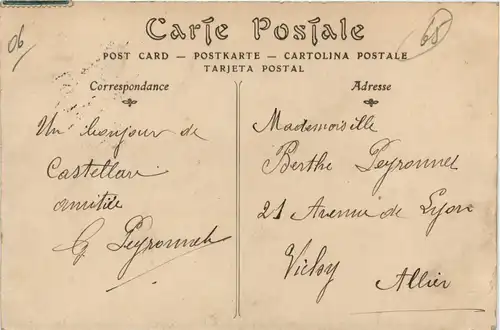 06
65
Carte Postale
POST CARD — POSTKARTE — CARTOLINA POSTALE
TARJETA POSTAL
Correspondance
Un bonjour de
Castellar
amitiés
G Peyronnet
Adresse
Mademoiselle
Berthe Peyronnet
21 Avenue de Lyon
Vichy
Allier